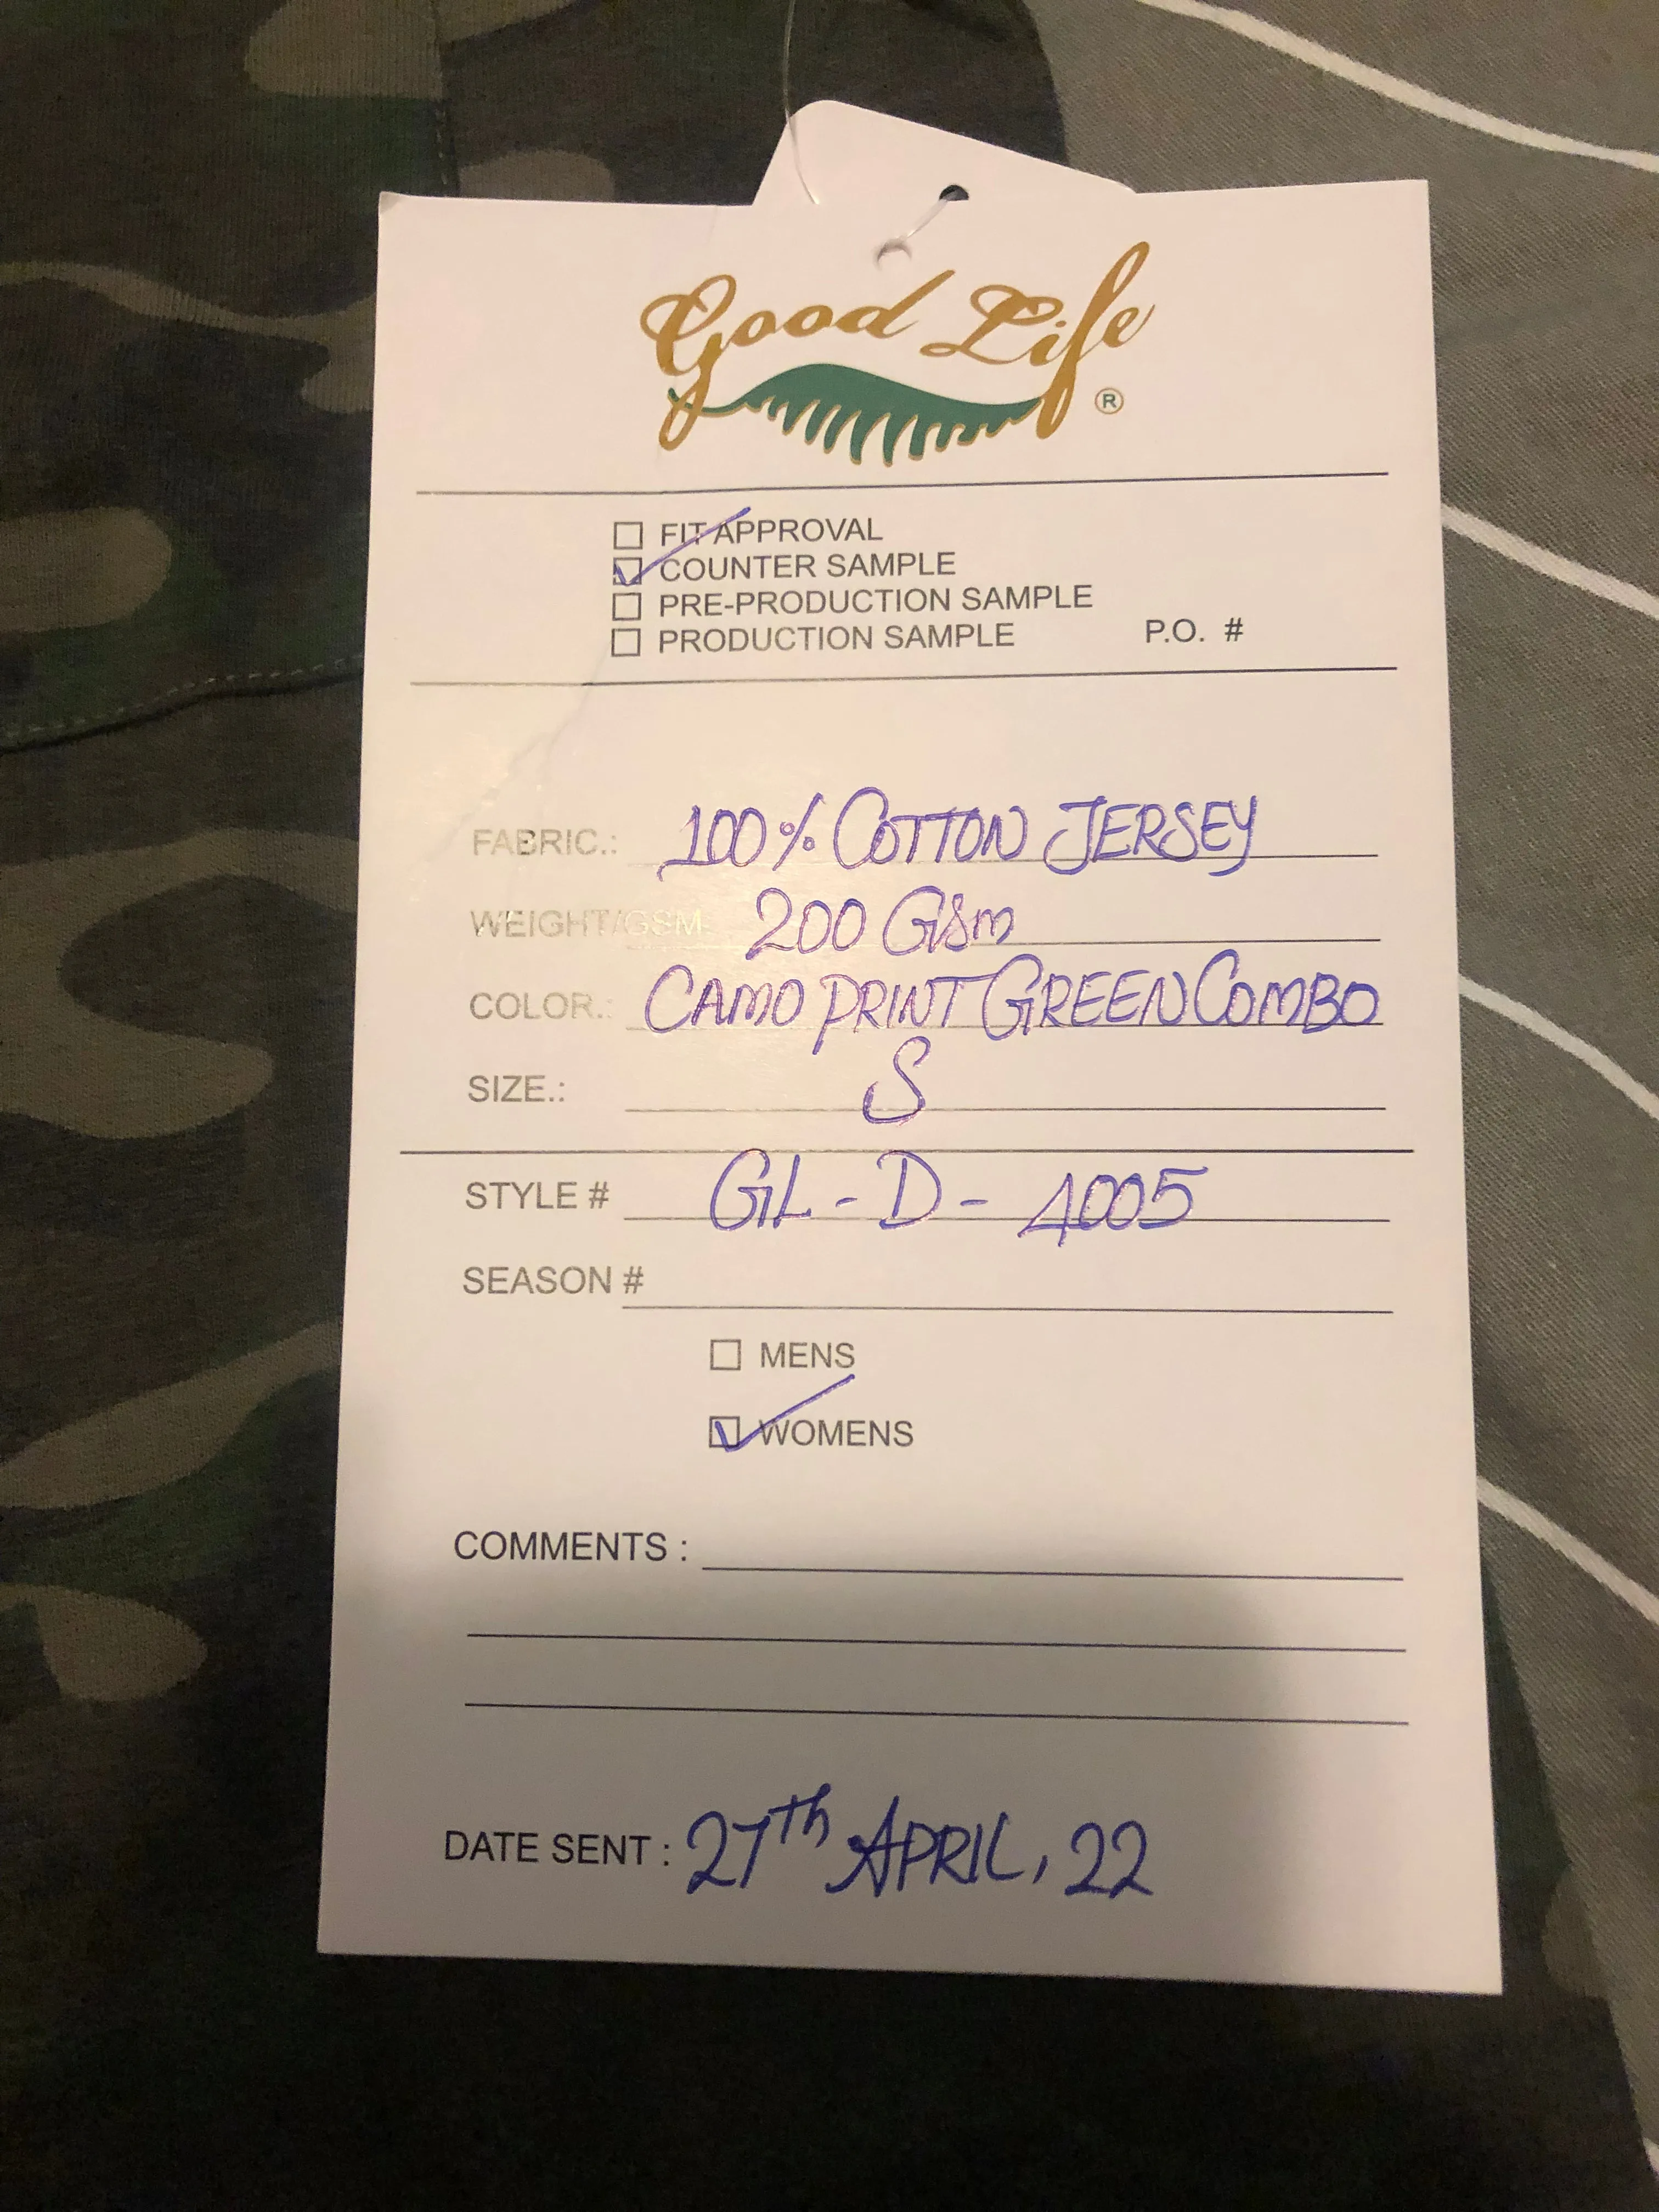 Good Life ®
FIT APPROVAL
COUNTER SAMPLE
PRE-PRODUCTION SAMPLE
PRODUCTION SAMPLE P.O. #
FABRIC.: 100% COTTON JERSEY
WEIGHT/GSM: 200 GSm
COLOR.: CAMO PRINT GREEN COMBO
SIZE.: S
STYLE # GL - D - 4005
SEASON #
MENS
WOMENS
COMMENTS :
DATE SENT : 27th APRIL, 22